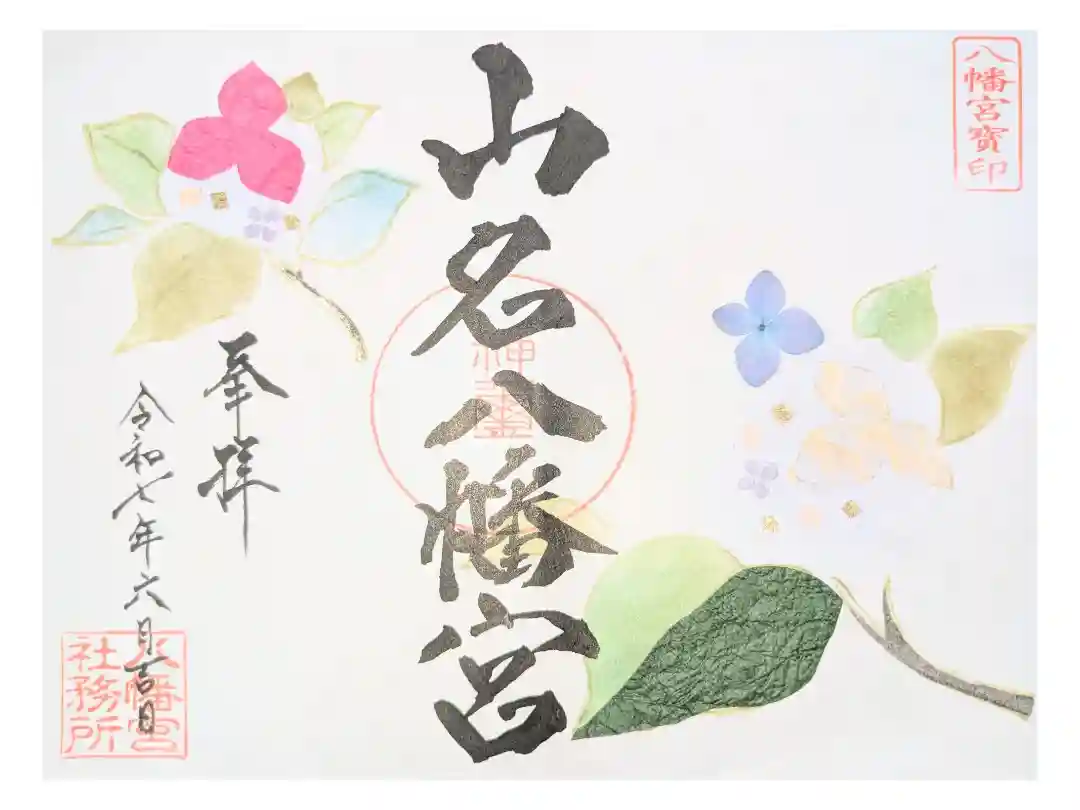 八幡宮寳印
山名八幡宮
神璽
奉拝
令和七年六月吉日
八幡宮
社務所